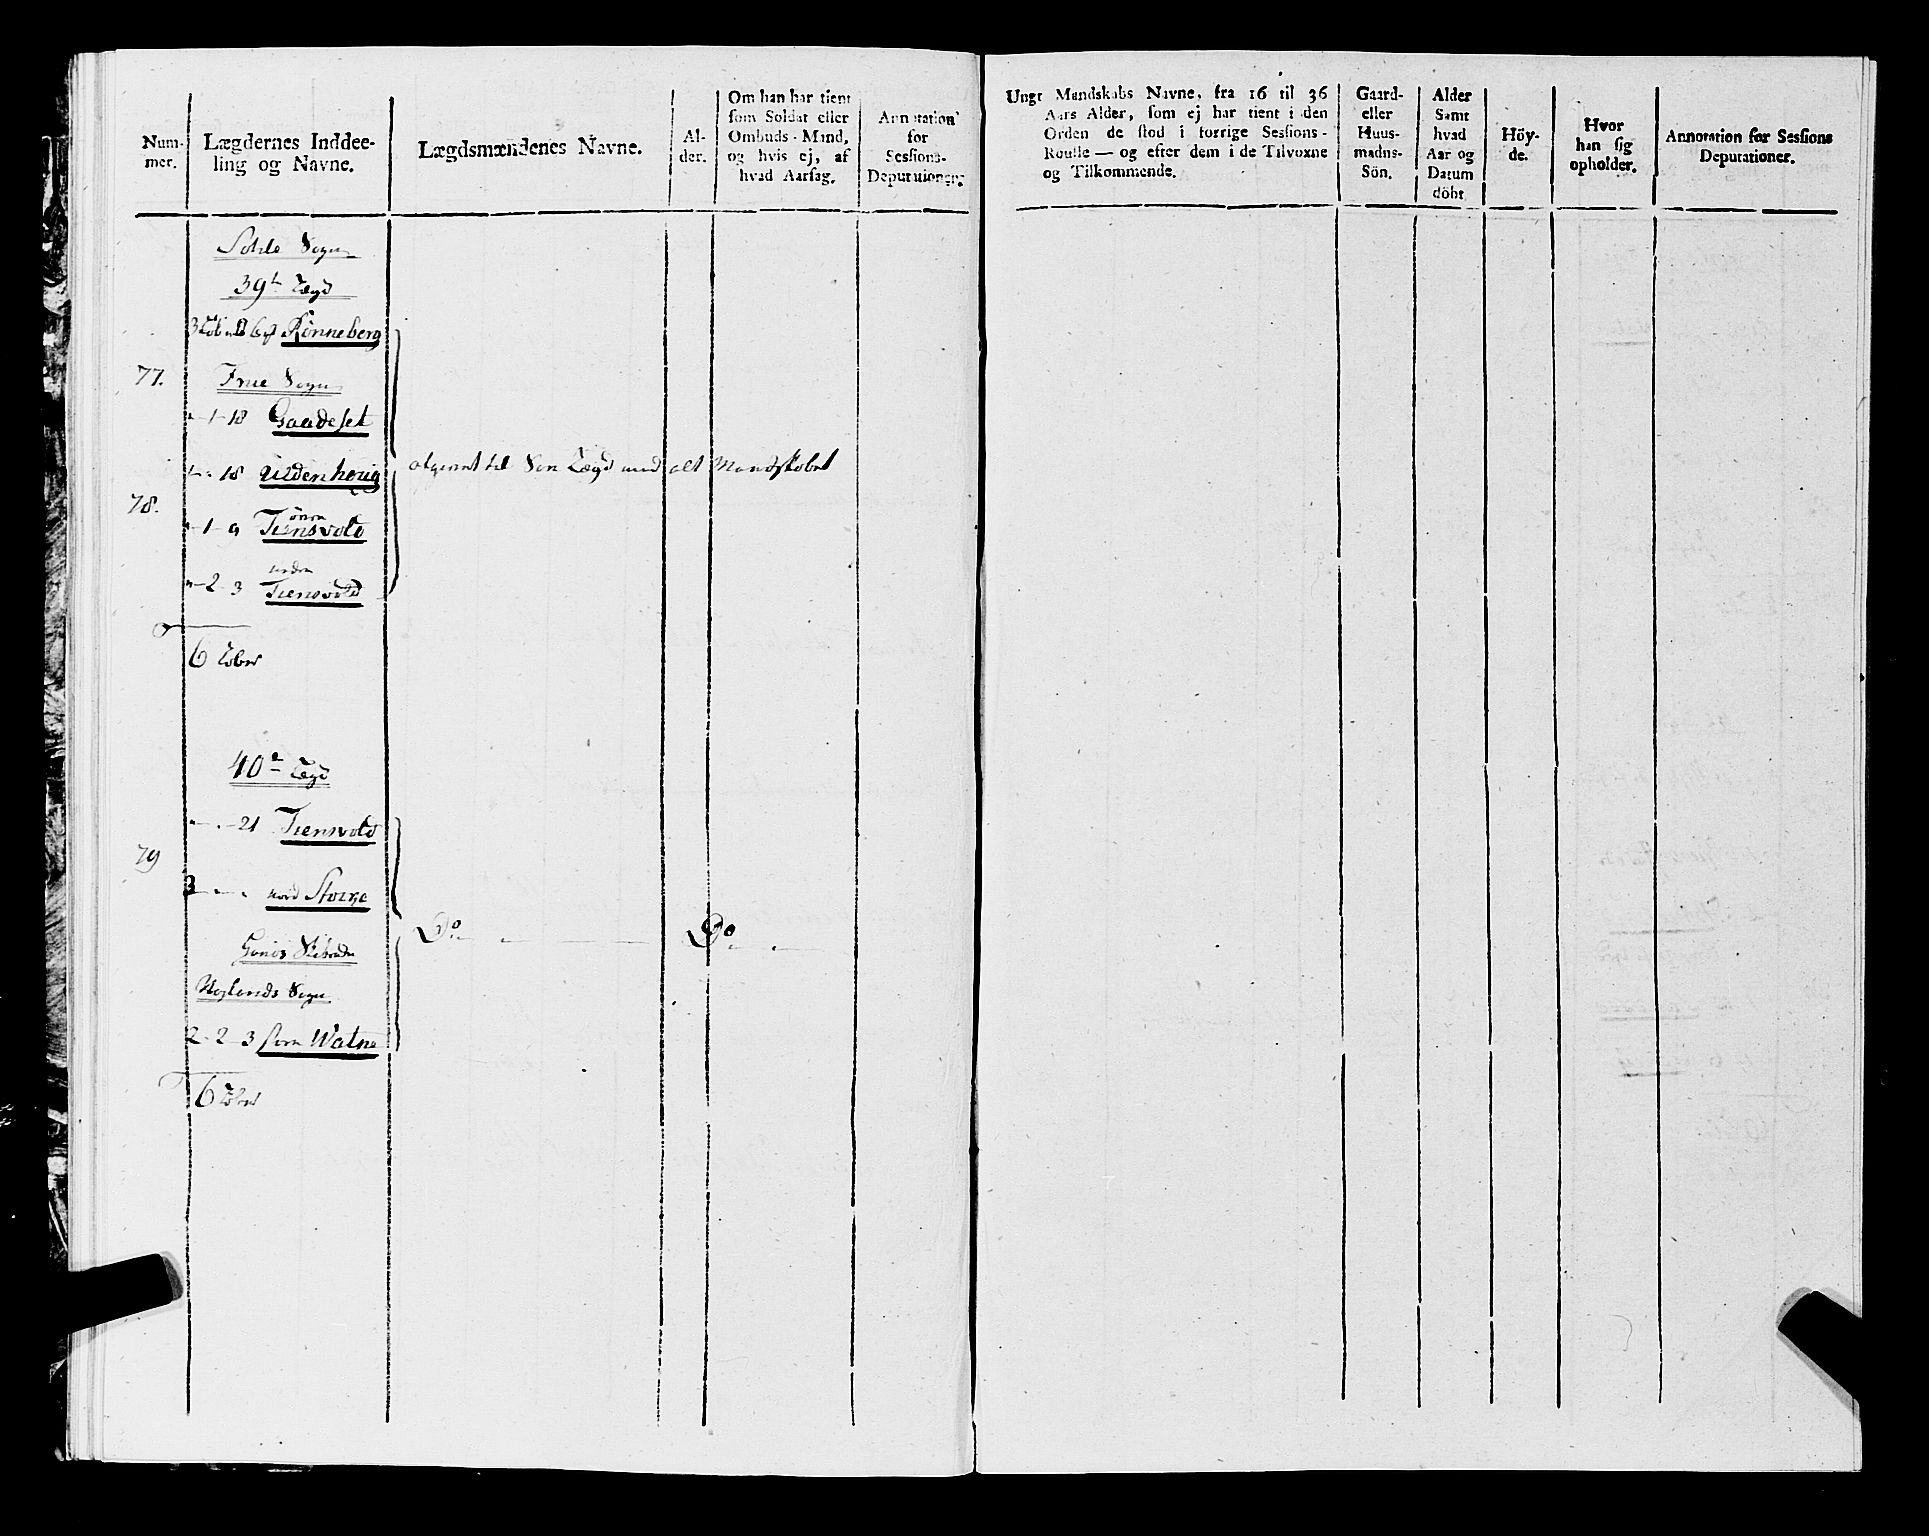 Num-
mer.
Lægdernes Inddee-
ling og Navne.
Lægdsmændenes Navne.
Al-
der.
Om han har tient
som Soldat eller
Ombuds-Mand,
og hvis ej, af
hvad Aarsag.
Annotation
for
Sessions-
Deputationer.
Ungt Mandskabs Navne, fra 16 til 36
Aars Alder, som ej har tient i den
Orden de stod i forrige Sessions-
Roulle — og efter dem i de Tilvoxne
og Tilkommende.
Gaard-
eller
Huus-
mands-
Sön.
Alder
Samt
hvad
Aar og
Datum
döbt
Höy-
de.
Hvor
han sig
opholder.
Annotation for Sessions
Deputationer.
Sohle Sogn
39t Lægd
Rönneberg
77.
Frue Sogn
1-18 Gaadeset
18
78.
1-9 öfre Tiensvold
2-3 neden Tiensvold
afgivet til Søn Lægd med alt Mandskabet
6 Löber
40e Lægd
-21 Tiensvold
79
3 nord Stocke
Do Do
Høylands Sogn
2-2-3 Watne
6 Löber